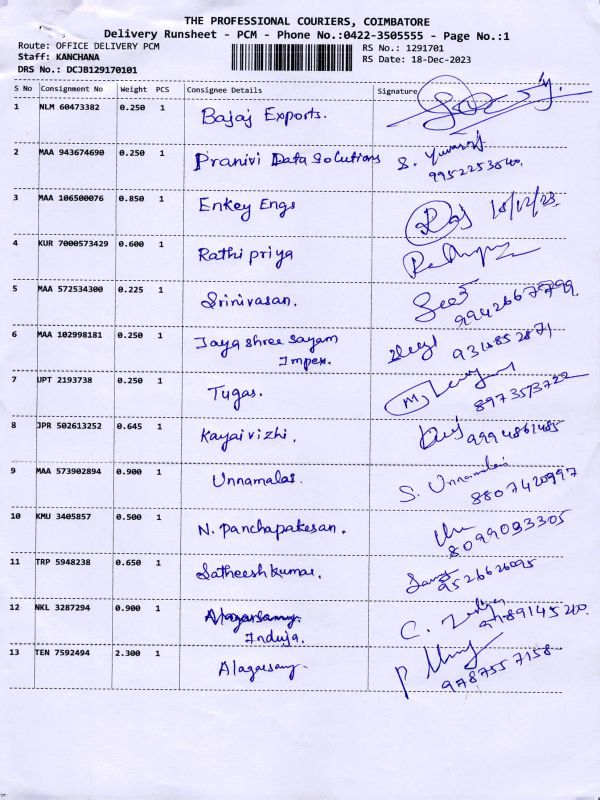 THE PROFESSIONAL COURIERS, COIMBATORE
Delivery Runsheet - PCM - Phone No.:0422-3505555 - Page No.:1
Route: OFFICE DELIVERY PCM RS No.: 1291701
Staff: KANCHANA RS Date: 18-Dec-2023
DRS No.: DCJB129170101
S No Consignment No Weight PCS Consignee Details Signature
1 NLM 60473382 0.250 1 Bajaj Exports.
2 MAA 943674690 0.250 1 Pranivi Data Solutions S.
9952253540.
3 MAA 106500076 0.850 1 Enkey Engs Raj 18/12/23
4 KUR 7000573429 0.600 1 Rathi priya
5 MAA 572534300 0.225 1 Srinivasan.
9942667799.
6 MAA 102998181 0.250 1 Jaya shree Sayam
Impex.
7 UPT 2193738 0.250 1 Tugas. M,
8973573722
8 JPR 502613252 0.645 1 Kayaivizhi. 9994861485
9 MAA 573902894 0.900 1 Unnamalai. S. Unnamalai
8807420997
10 KMU 3405857 0.500 1 N. Panchapakesan.
8099093305
11 TRP 5948238 0.650 1 Satheesh kumar.
9526626095
12 NKL 3287294 0.900 1 Alagarsamy C.
Induja.
13 TEN 7592494 2.300 1 Alagarsamy. P
9787557158